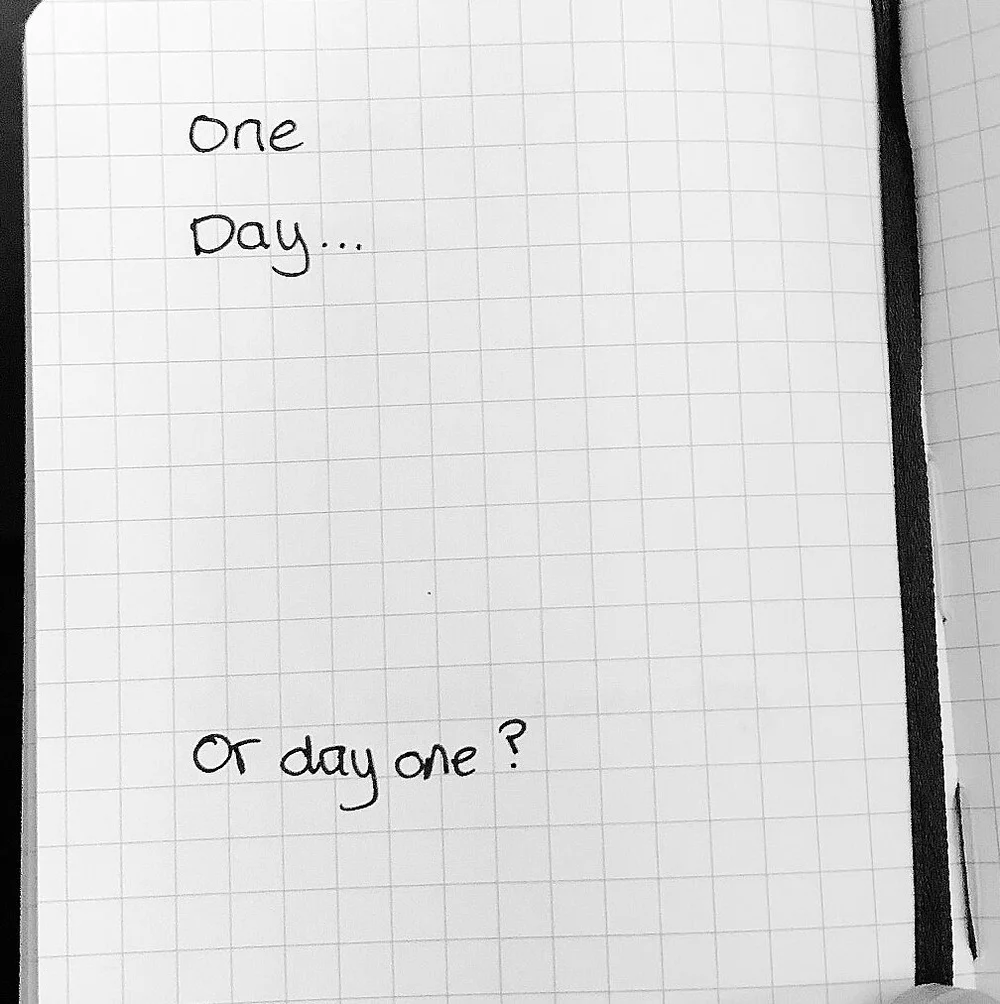 One
Day...
Or day one?